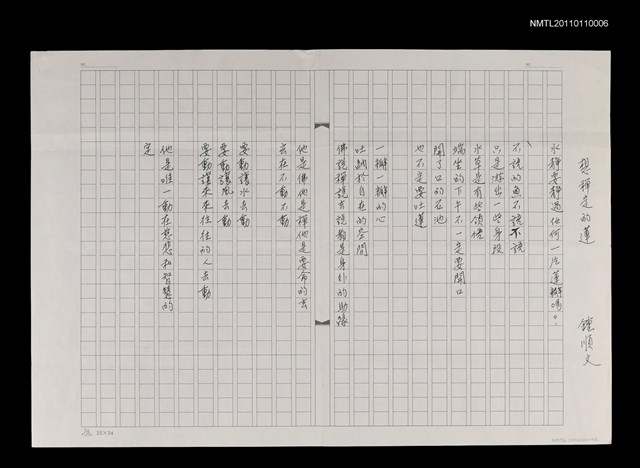 NMTL20110110006
想禪定的蓮
鍾順文
水靜要靜過任何一片蓮瓣嗎。
不說的魚不說不說
只是游出一些身段
水草是有些領悟
端坐的下午不一定要開口
開了口的石池
也不定要吐蓮
一瓣一瓣的心
吐納於自在的空間
佛說禪說去說都是身外的助緣
他是佛他是禪他是要命的去
去在不動不動
要動讓水去動
要動讓風去動
要動讓來來往往的人去動
他是唯一動在慈悲和智慧的
定
25×24